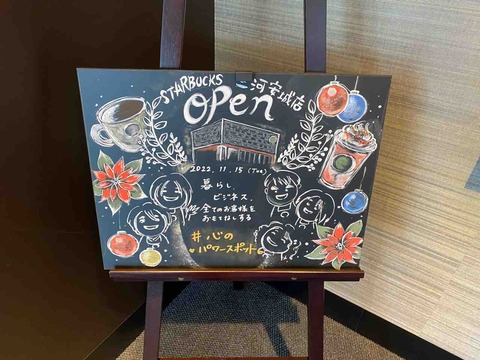 STARBUCKS 三河安城店
open
2022.11.15 (Tue)
暮らし、
ビジネス、
全てのお客様を
おもてなしする
#心の
パワースポット